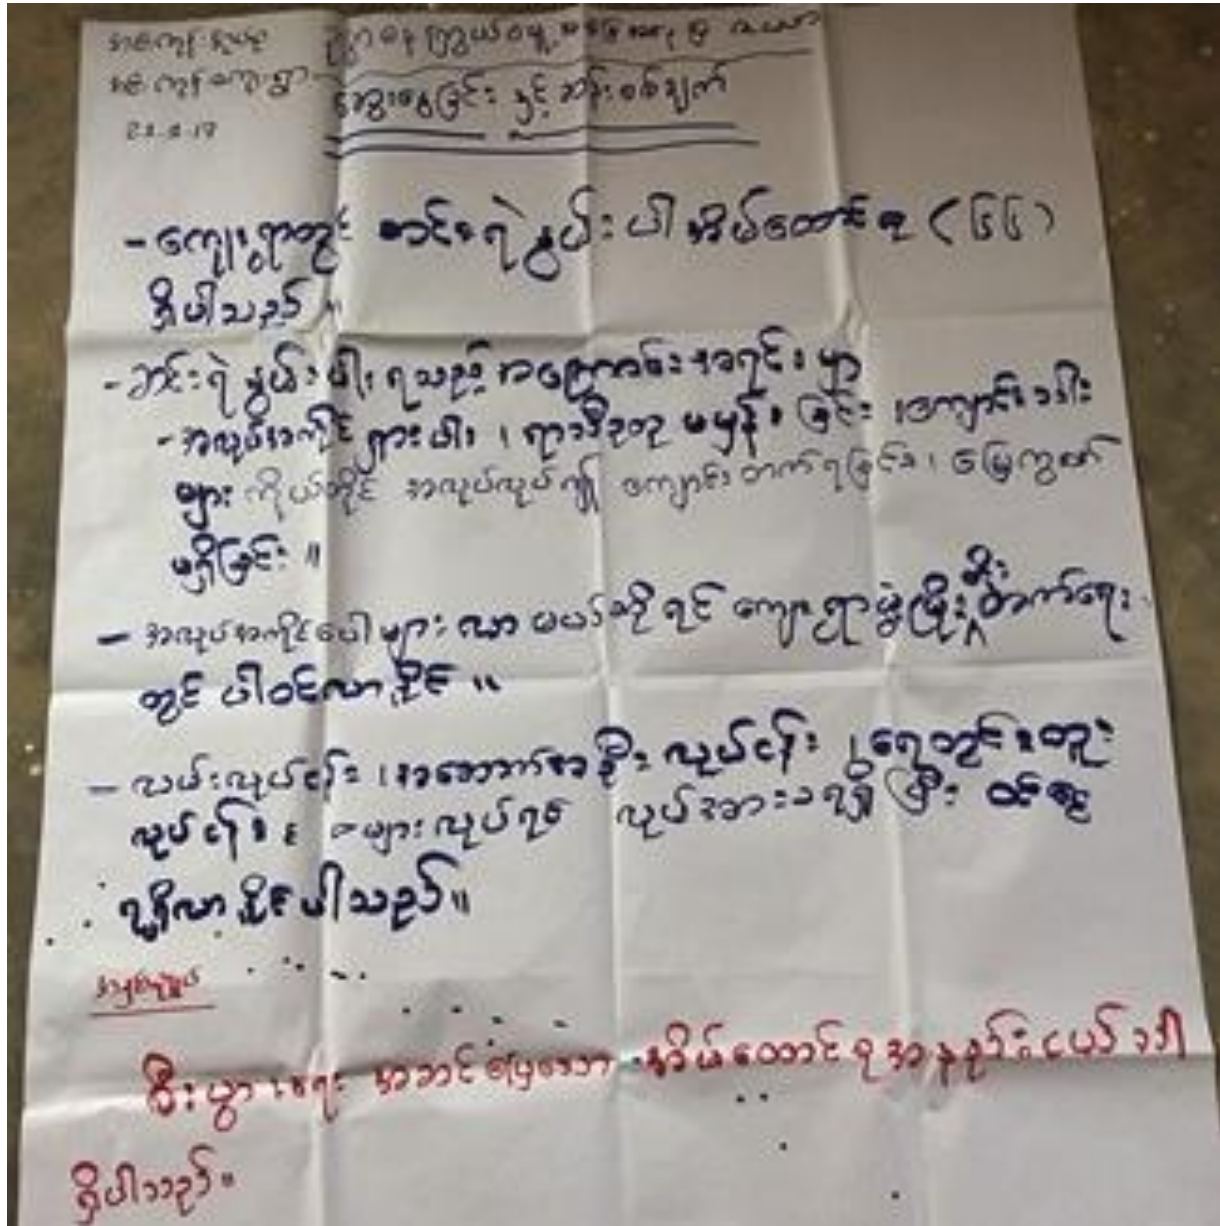 ဥစ္စာဓန ကြွယ်ဝမှု အခြေအနေပြ ဇယား
ဆွေးနွေးခြင်း နှင့် ဆန်းစစ်ချက်
၂၁-၈-၁၇
- ကျေးရွာတွင် ဆင်းရဲနွမ်းပါးအိမ်ထောင်စု (၆၆)
ရှိပါသည်။
- ဆင်းရဲနွမ်းပါးရသည့် အကြောင်းအရင်းမှာ
- အလုပ်အကိုင်ရှားပါး၊ ရာသီဥတု မမှန်ခြင်း၊ ကျောင်းသား
များ ကိုယ်တိုင် အလုပ်လုပ်၍ ကျောင်းတက်ရခြင်း၊ မြေကွက်
မရှိခြင်း။
- အလုပ်အကိုင်ပေါများလာမယ်ဆိုရင် ကျေးရွာဖွံ့ဖြိုးတိုးတက်ရေး
တွင် ပါဝင်လာနိုင်။
- လမ်းလုပ်ငန်း၊ အဆောက်အဦး လုပ်ငန်း၊ ရေတွင်းတူး
လုပ်ငန်း များလုပ်ရင် လုပ်အားခရရှိပြီး ဝင်ငွေ
ရရှိလာနိုင်ပါသည်။
စီးပွားရေး အဆင်ပြေသော အိမ်ထောင်စု အနည်းငယ်သာ
ရှိပါသည်။